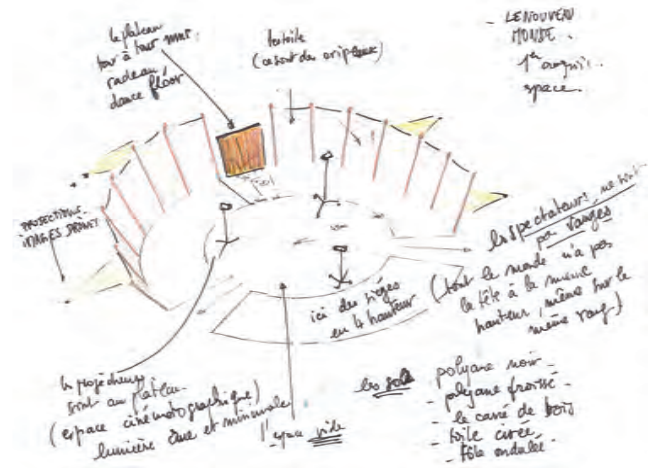 le plateau
tour à tour mur.
radeau,
dance floor
la toile
(ce sont des oripeaux)
- LE NOUVEAU
MONDE.
1er
space.
PROJECTIONS
IMAGES DRONES
les spectateurs, ne sont
pas rangés
(tout le monde n'a pas
la tête à la même
hauteur, même sur le
même rang)
ici des sièges
en 4 hauteur
les projecteurs
sont au plateau.
(espace cinématographique)
lumière crue et minimale
l'espace vide
les sols
polyane noir -
- polyane froissé -
- le carré de bois
- toile cirée -
- tôle ondulée -